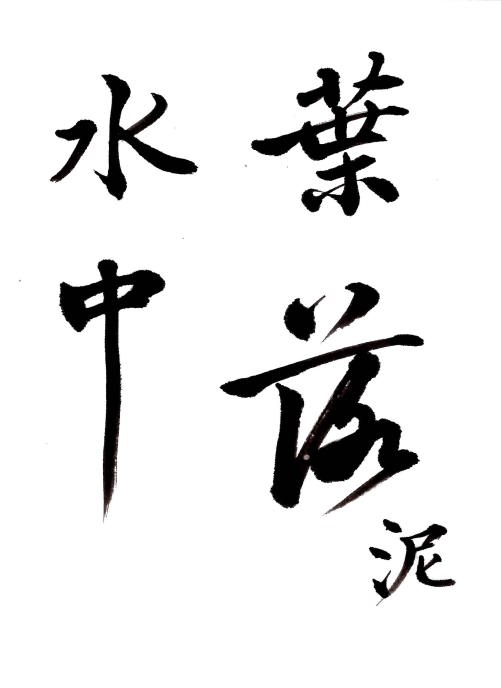 葉落
泥
水中